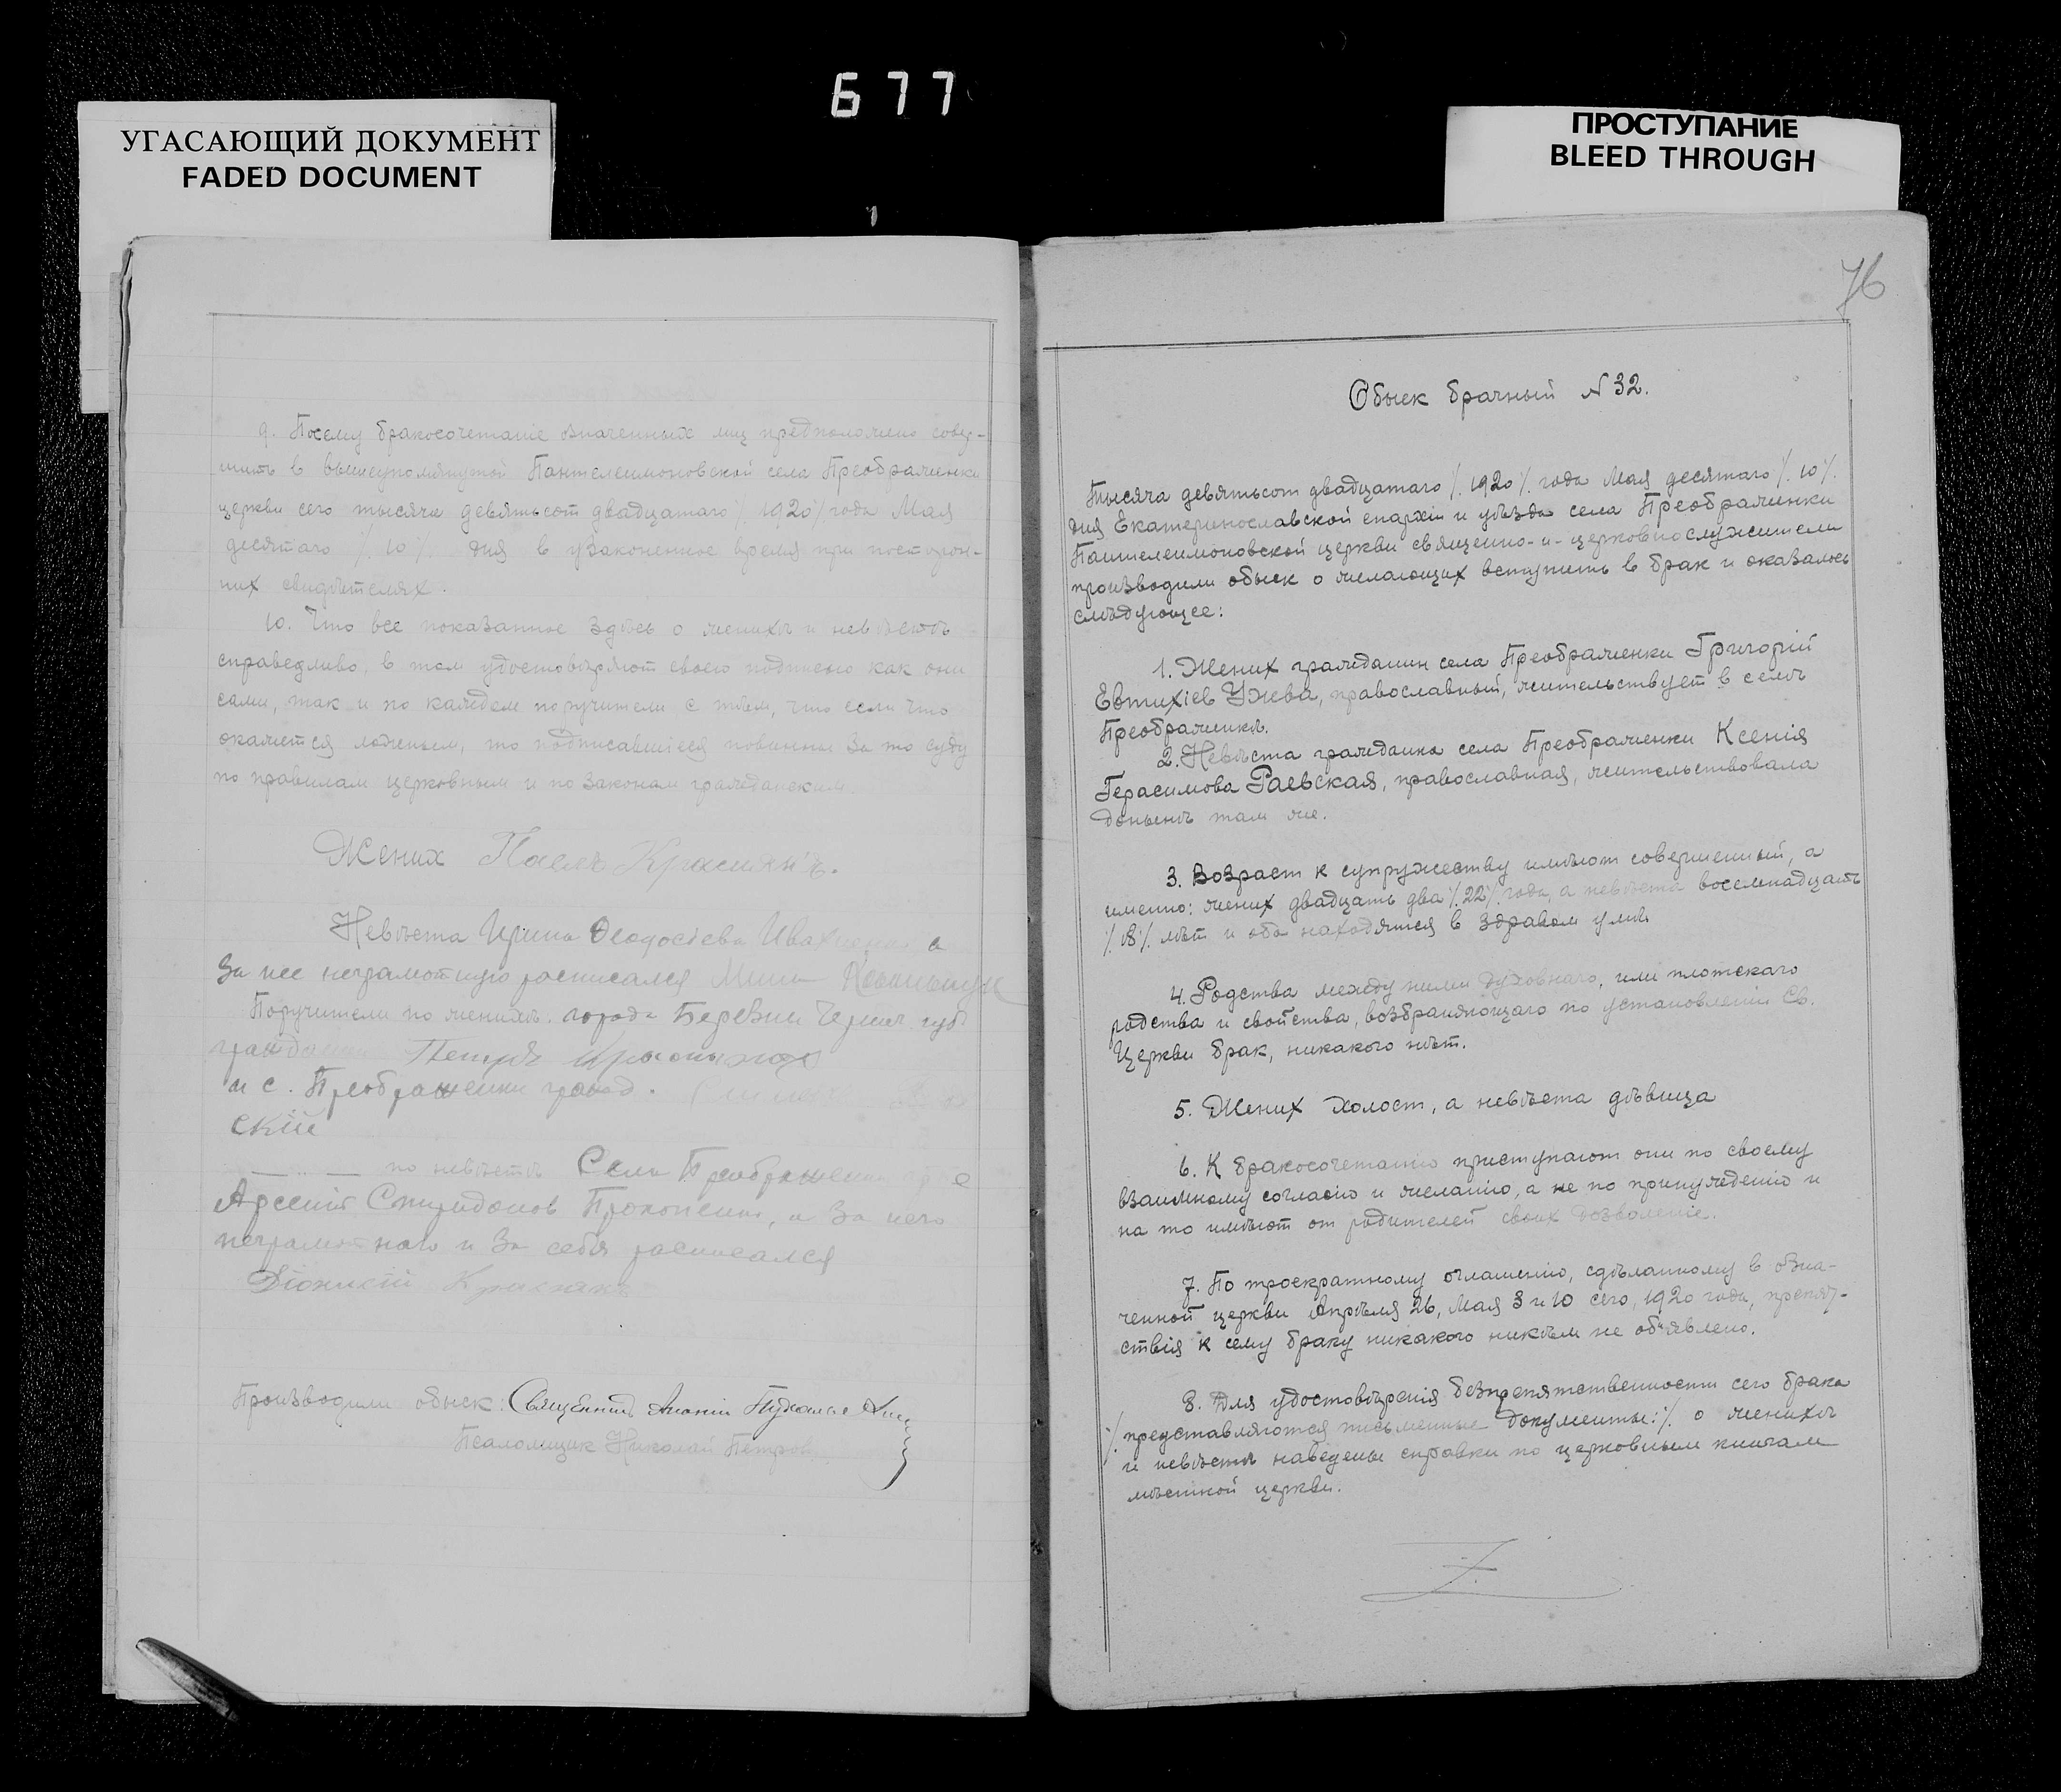 677
УГАСАЮЩИЙ ДОКУМЕНТ
FADED DOCUMENT
ПРОСТУПАНИЕ
BLEED THROUGH
9. Посему бракосочетаніе означенных лиц предположено совер-
шить в вышеупомянутой Пантелеимоновской села Преображенки
церкви сего тысяча девятьсот двадцатаго /. 1920 /. года Мая
десятаго /. 10 /. дня в узаконенное время при посторон-
них свидѣтелях.
10. Что все показанное здѣсь о женихѣ и невѣстѣ
справедливо, в том удостовѣряют своею подписью как они
сами, так и по каждом поручители с тѣм, что если что
окажется ложным, то подписавшіеся повинны за то суду
по правилам церковным и по законам гражданским.
Жених
Невѣста Ирина Ѳеодосіева
За нее неграмотную расписался
Поручители по женихѣ: города Березни Черниг. губ
гражданин Петръ
и с. Преображенки гражд.
скій
по невѣстѣ Села Преображенки
Арсеній Спиридонов Прокопенко, а за него
неграмотного и за себя расписался
Діонисій
Производили обыск: Священник
Псаломщик Николай Петров
76
Обыск брачный № 32.
Тысяча девятьсот двадцатаго /. 1920 /. года Мая десятаго /. 10 /.
дня Екатеринославской епархіи и уѣзда села Преображенки
Пантелеимоновской церкви священно-и-церковнослужители
производили обыск о желающих вступить в брак и оказалось
слѣдующее:
1. Жених гражданин села Преображенки Григорій
Евтихіев Ужева, православный, жительствует в селѣ
Преображенкѣ.
2. Невѣста гражданка села Преображенки Ксенія
Герасимова Раевская, православная, жительствовала
донынѣ там же.
3. Возраст к супружеству имѣют совершенный, а
именно: жених двадцать два /. 22 /. года, а невѣста восемнадцать
/. 18 /. лѣт и оба находятся в здравом умѣ.
4. Родства между ними духовнаго, или плотскаго
родства и свойства, возбраняющаго по установленію Св.
Церкви брак, никакого нѣт.
5. Жених холост, а невѣста дѣвица
6. К бракосочетанію приступают они по своему
взаимному согласію и желанію, а не по принужденію и
на то имѣют от родителей своих дозволеніе.
7. По троекратному оглашенію, сдѣланному в озна-
ченной церкви Апрѣля 26, Мая 3 и 10 сего, 1920 года, препят-
ствія к сему браку никакого никѣм не об'явлено.
8. Для удостовѣренія безпрепятственности сего брака
/. представляются письменные документы: /. о женихѣ
и невѣстѣ наведены справки по церковным книгам
мѣстной церкви.